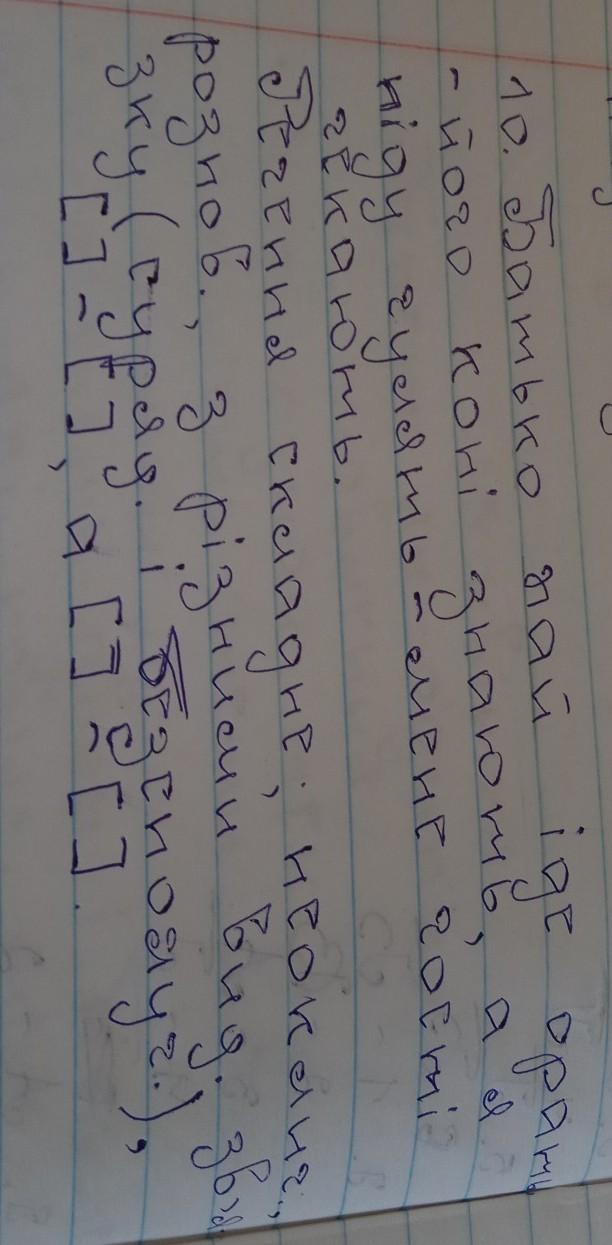 10. Батько най іде орать
- його коні знають, а я
піду гулять - мене гості
чекають.
Речення складне. неоканч.,
розпов., з різними вид. звʼя-
зку (суряд. і безсполуч.),
[ ] - [ ], а [ ] - [ ].